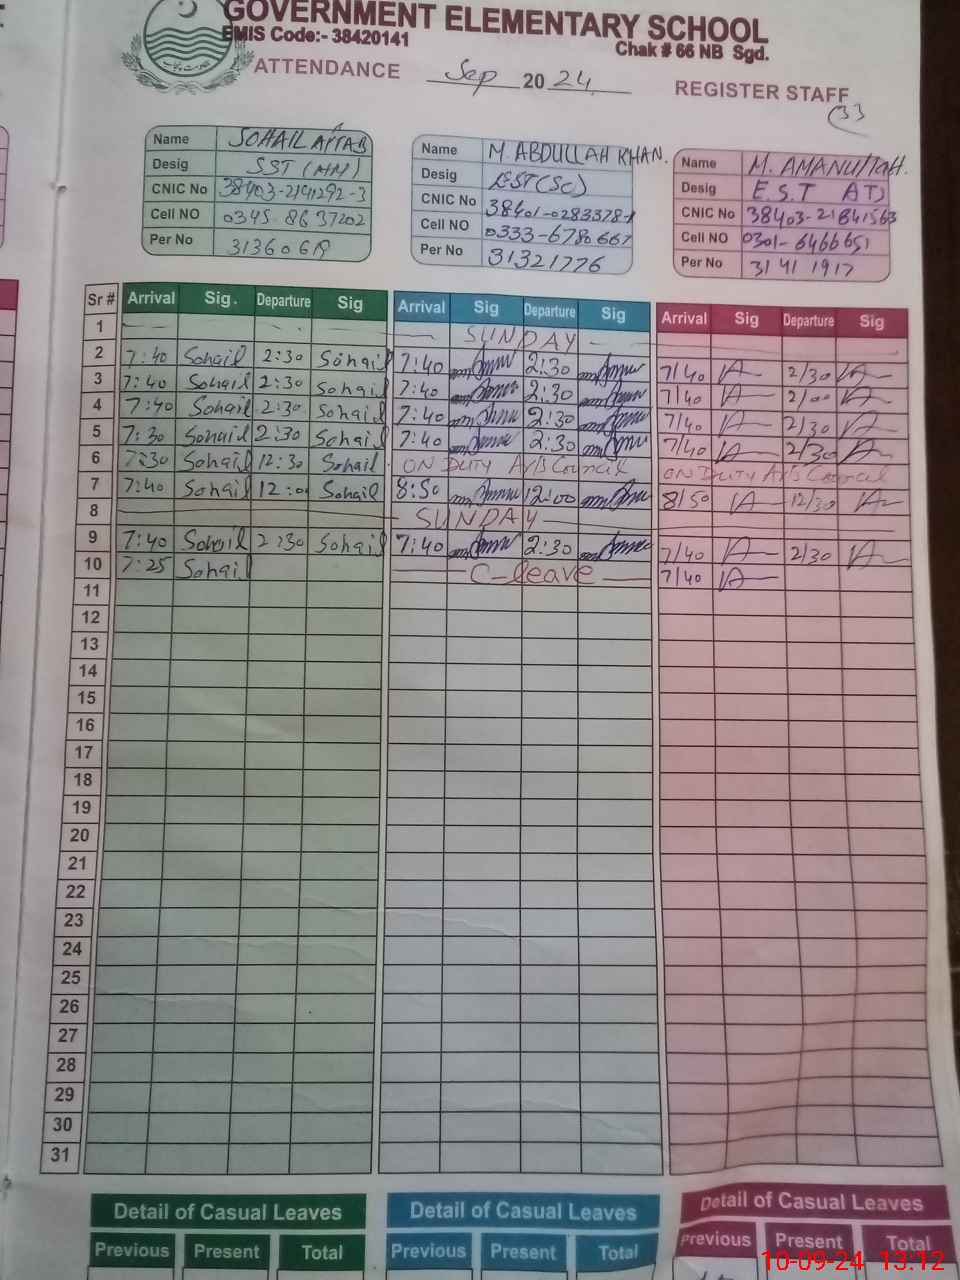 GOVERNMENT ELEMENTARY SCHOOL
EMIS Code:- 38420141
Chak # 66 NB Sgd.
ATTENDANCE Sep 2024 REGISTER STAFF
(33)
Name SOHAIL AFTAB
Desig SST (
CNIC No 38403-2191292-3
Cell NO 0345-8637202
Per No 31360619
Name M. ABDULLAH KHAN.
Desig EST (SC)
CNIC No 38401-0283378-1
Cell NO 0333-6780667
Per No 31321776
Name M. AMANULLAH.
Desig E.S.T AT)
CNIC No 38403-21841563
Cell NO 0301-6466651
Per No 31411917
Sr # Arrival Sig. Departure Sig Arrival Sig Departure Sig Arrival Sig Departure Sig
1 SUNDAY
2 7:40 Sohail 2:30 Sohail 7:40 2:30 7/40 2/30
3 7:40 Sohail 2:30 Sohail 7:40 2:30 7/40 2/00
4 7:40 Sohail 2:30 Sohail 7:40 2:30 7/40 2/30
5 7:30 Sohail 2:30 Sohail 7:40 2:30 7/40 2/30
6 7:30 Sohail 12:30 Sohail ON DUTY Arts Council ON DUTY Arts Council
7 7:40 Sohail 12:00 Sohail 8:50 12:00 8/50 12/30
8 SUNDAY
9 7:40 Sohail 2:30 Sohail 7:40 2:30 7/40 2/30
10 7:25 Sohail C-leave 7/40
11
12
13
14
15
16
17
18
19
20
21
22
23
24
25
26
27
28
29
30
31
Detail of Casual Leaves Detail of Casual Leaves Detail of Casual Leaves
Previous Present Total Previous Present Total Previous Present Total
10-09-24 13:12